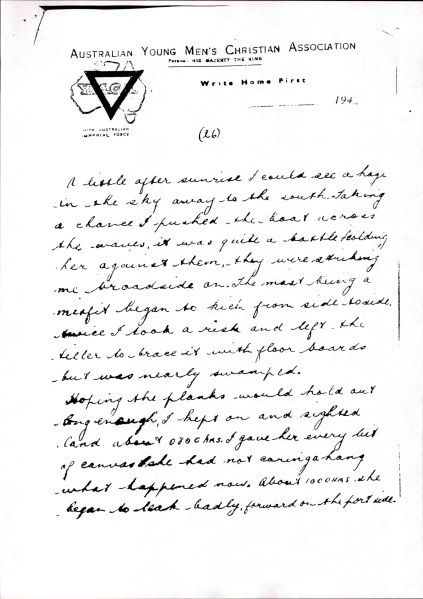 AUSTRALIAN YOUNG MEN'S CHRISTIAN ASSOCIATION
Patron: HIS MAJESTY THE KING
Y.M.C.A.
WITH AUSTRALIAN
IMPERIAL FORCE
Write Home First
194
(26)
A little after sunrise I could see a haze
in the sky away to the south. Taking
a chance I pushed the boat across
the waves, it was quite a battle holding
her against them, they were striking
me broadside on. The mast being a
misfit began to kick from side to side.
twice I took a risk and left the
tiller to brace it with floor boards
but was nearly swamped.
Hoping the planks would hold out
long enough, I kept on and sighted
land about 0800 hrs. I gave her every bit
of canvas she had not caring a hang
what happened now. About 1000 HRS she
began to leak badly, forward on the port side.